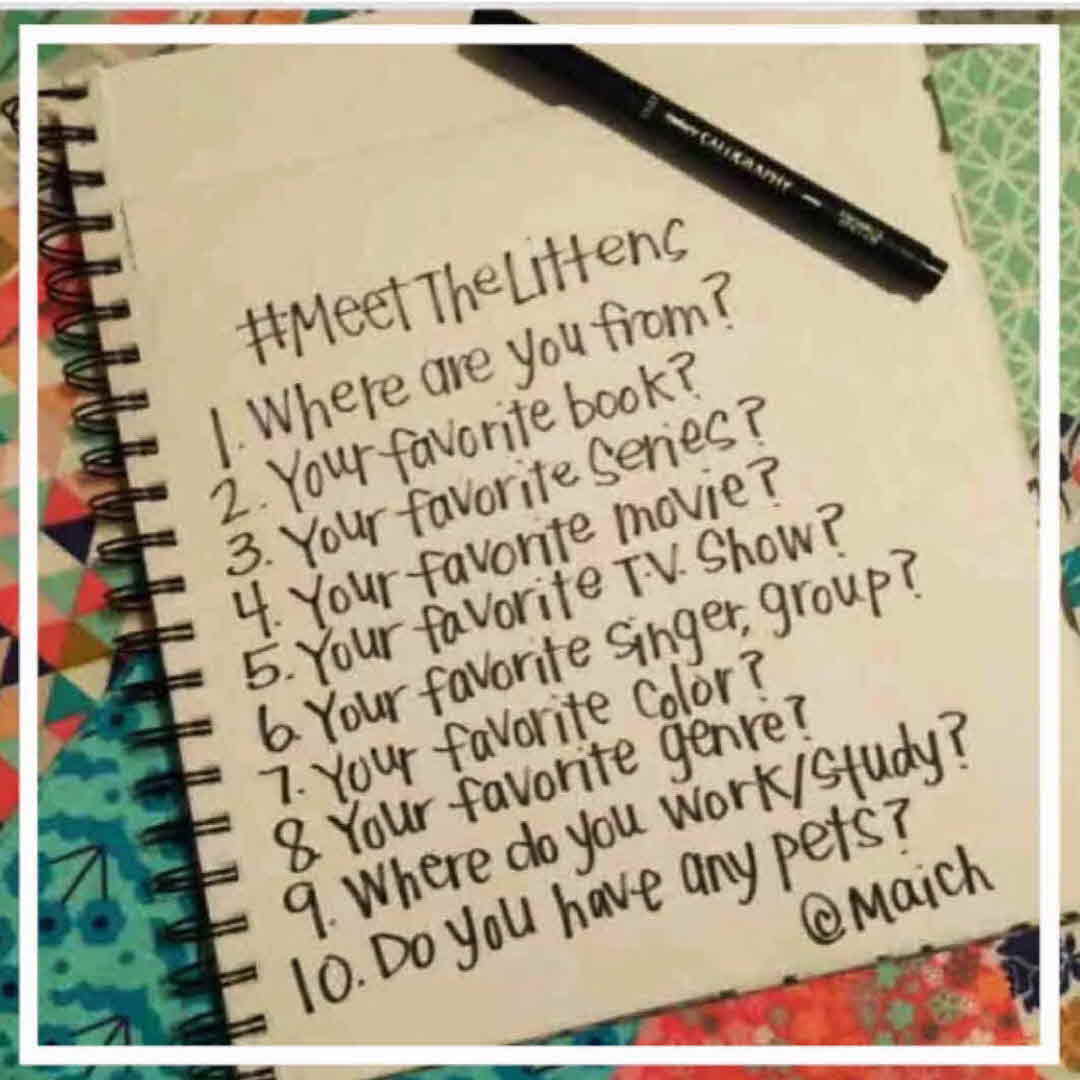 CALLIGRAPHY
#MeetTheLittens
1. Where are you from?
2. Your favorite book?
3. Your favorite Series?
4. Your favorite movie?
5. Your favorite T.V. Show?
6 Your favorite singer, group?
7. Your favorite Color?
8 Your favorite genre?
9. Where do you work/study?
10. Do you have any pets?
@Maich